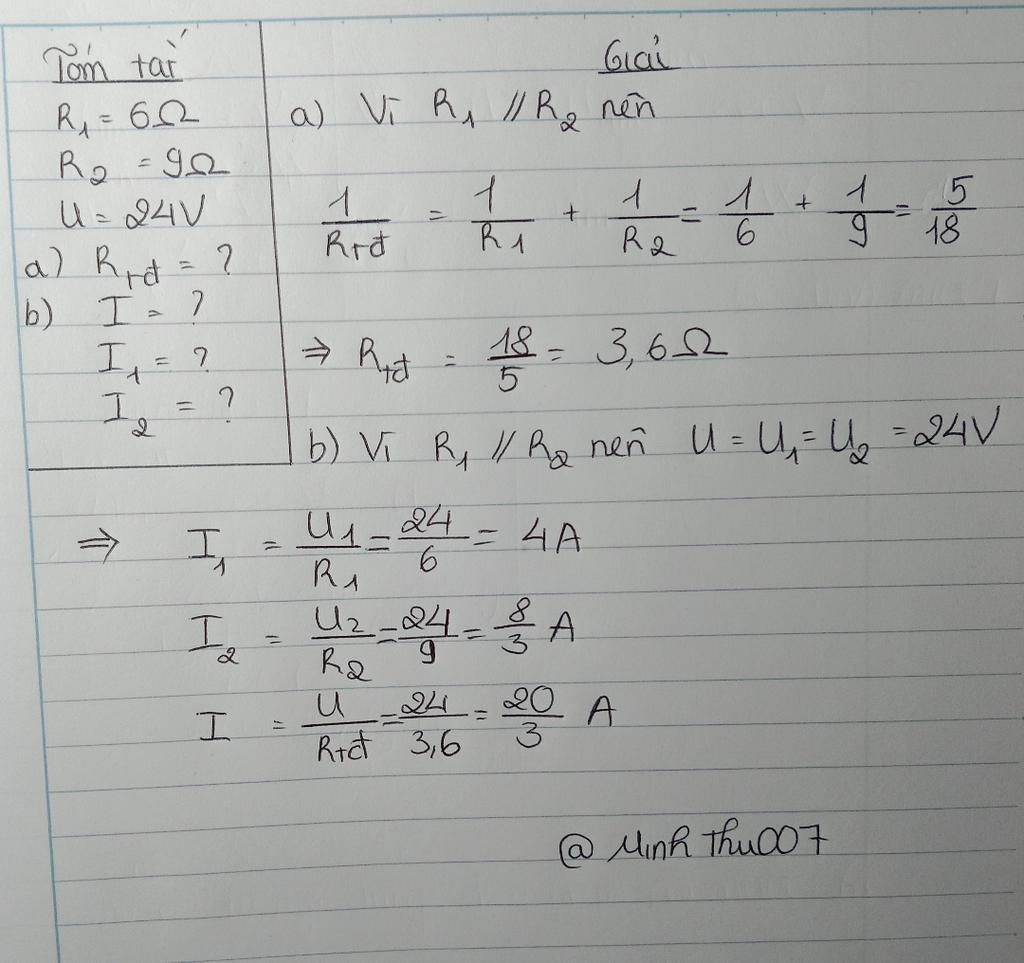 Tóm tắt
R₁ = 6Ω
R₂ = 9Ω
U = 24V
a) Rtđ = ?
b) I = ?
I₁ = ?
I₂ = ?
Giải
a) Vì R₁ // R₂ nên
1/Rtđ = 1/R₁ + 1/R₂ = 1/6 + 1/9 = 5/18
⇒ Rtđ = 18/5 = 3,6Ω
b) Vì R₁ // R₂ nên U = U₁ = U₂ = 24V
⇒ I₁ = U₁/R₁ = 24/6 = 4A
I₂ = U₂/R₂ = 24/9 = 8/3 A
I = U/Rtđ = 24/3,6 = 20/3 A
@ Minh Thu007